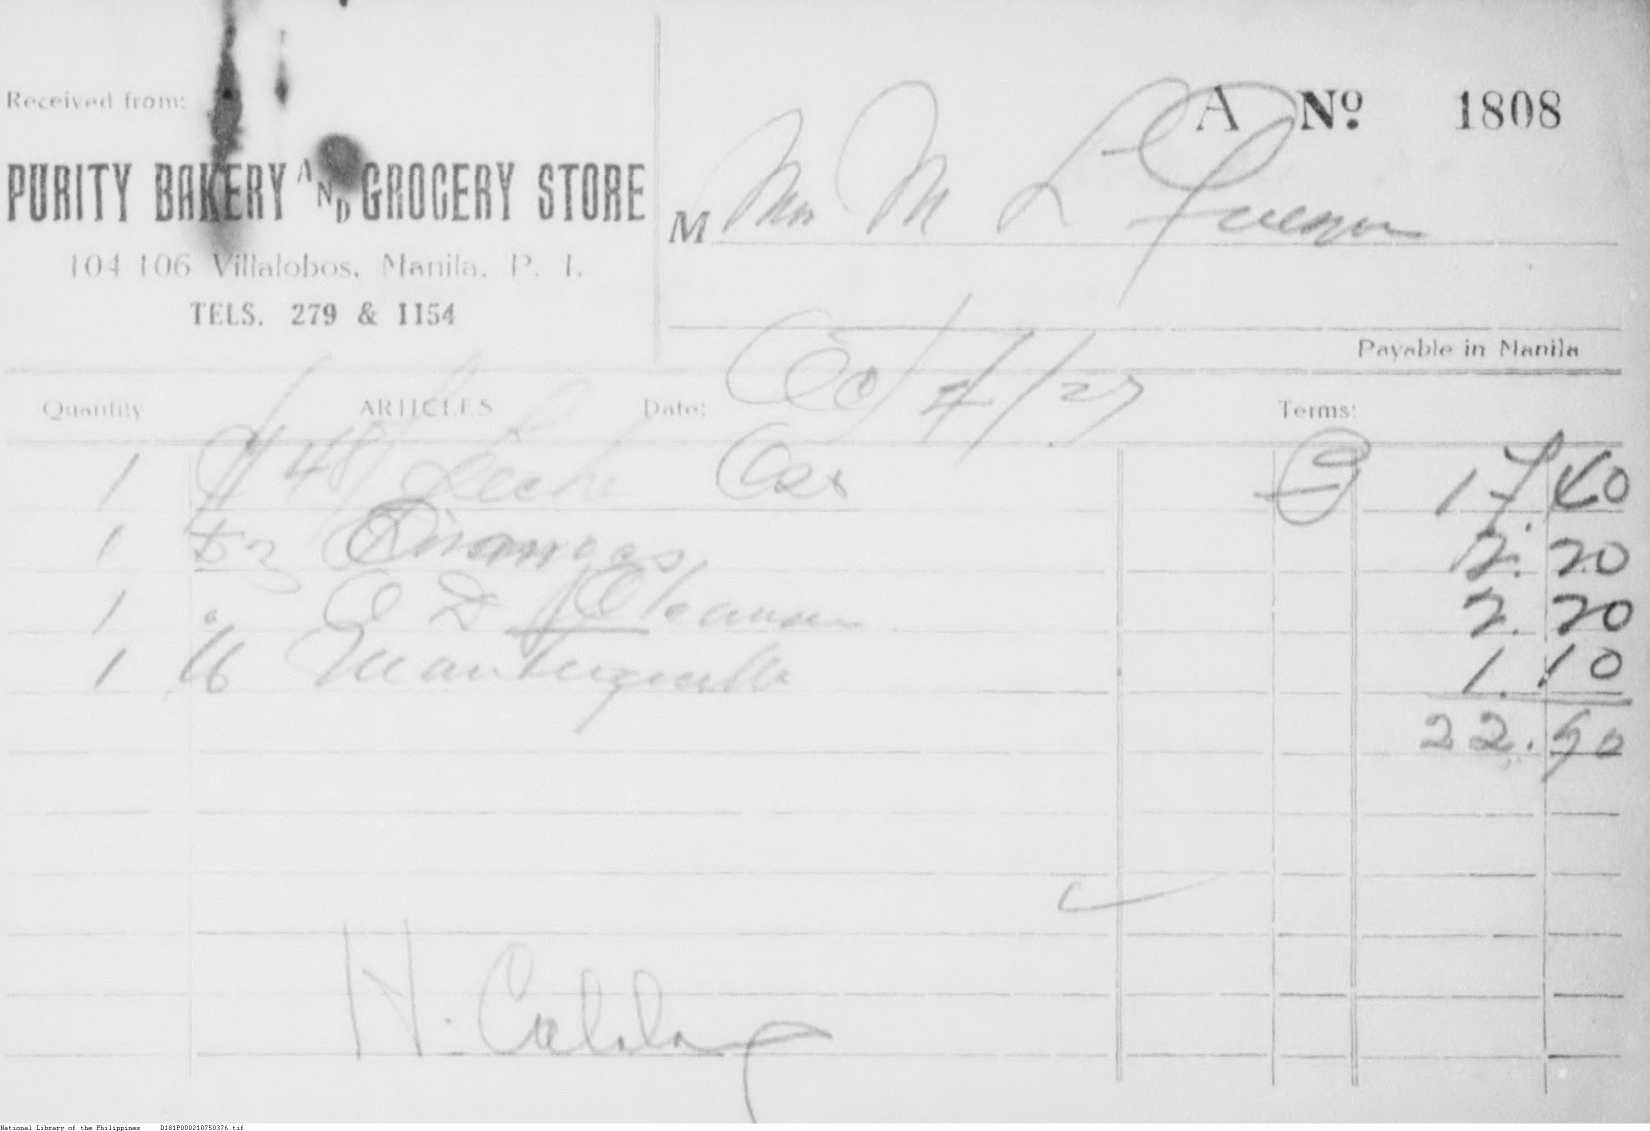 Received from:
PURITY BAKERY AND GROCERY STORE
104-106 Villalobos, Manila, P. I.
TELS. 279 & 1154
A Nº 1808
M Mrs M L Quezon
Payable in Manila
Quantity ARTICLES Date: Oct 4/27 Terms:
1 48 Leche Oso 17.40
1 Dz Oranges 2.20
1 " O D Cleanser 2.20
1 lb Mantequilla 1.10
22.90
H.
National Library of the Philippines D181P000210750376.tif